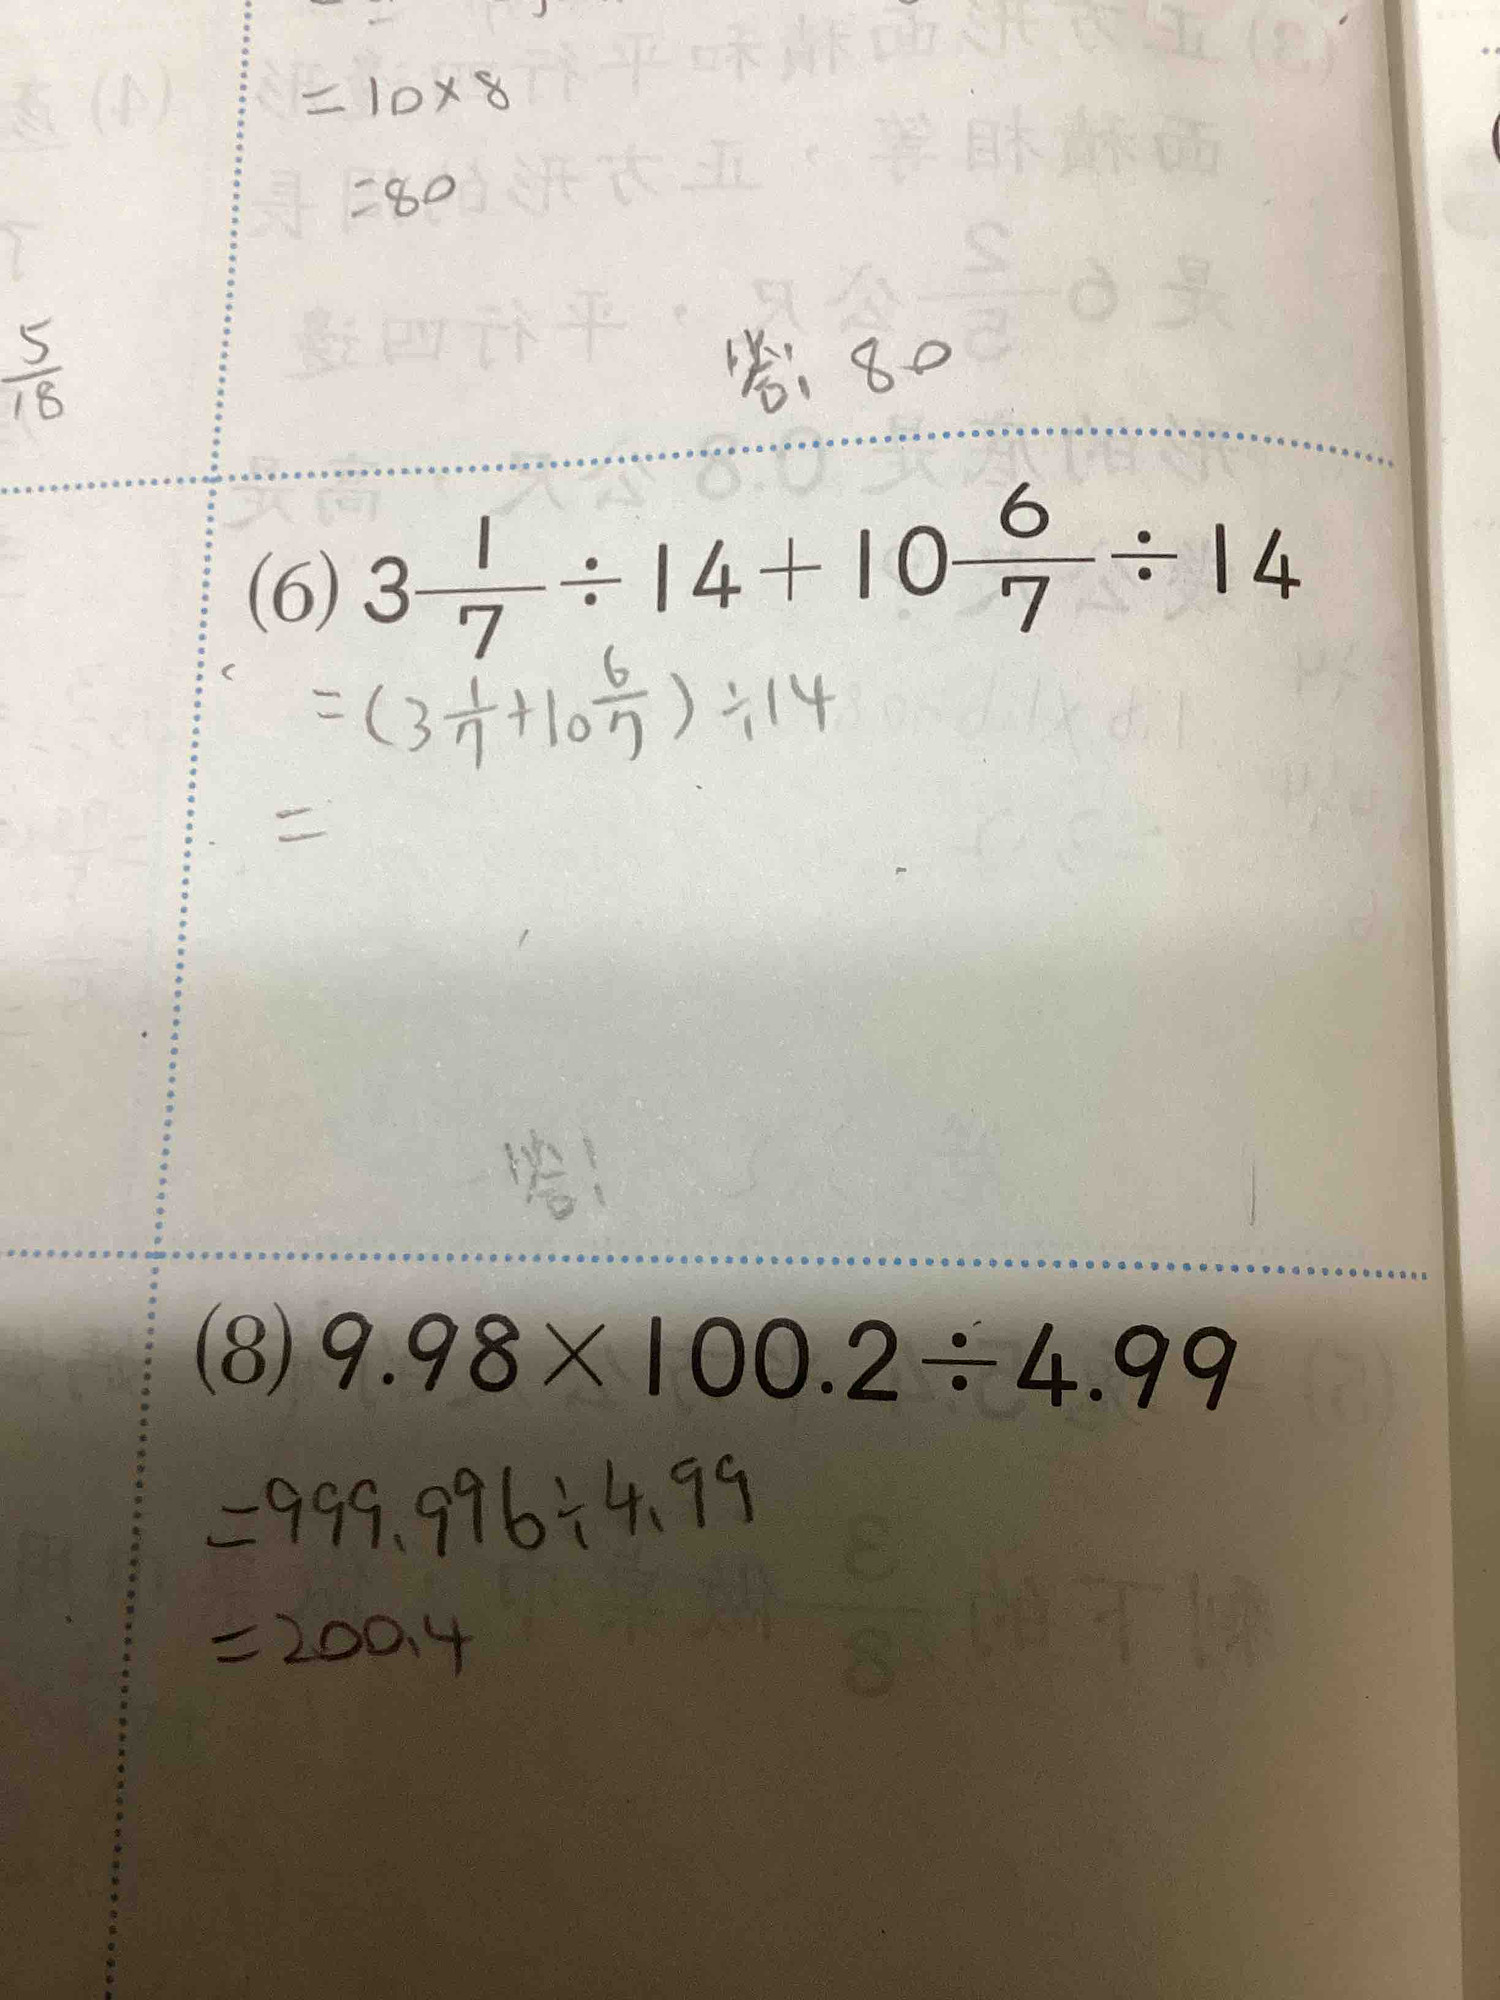 =10×8
=80
答: 80
5/18
(6) 3 1/7 ÷14+10 6/7 ÷14
=(3 1/7+10 6/7)÷14
=
答:
(8) 9.98×100.2÷4.99
=999.996÷4.99
=200.4